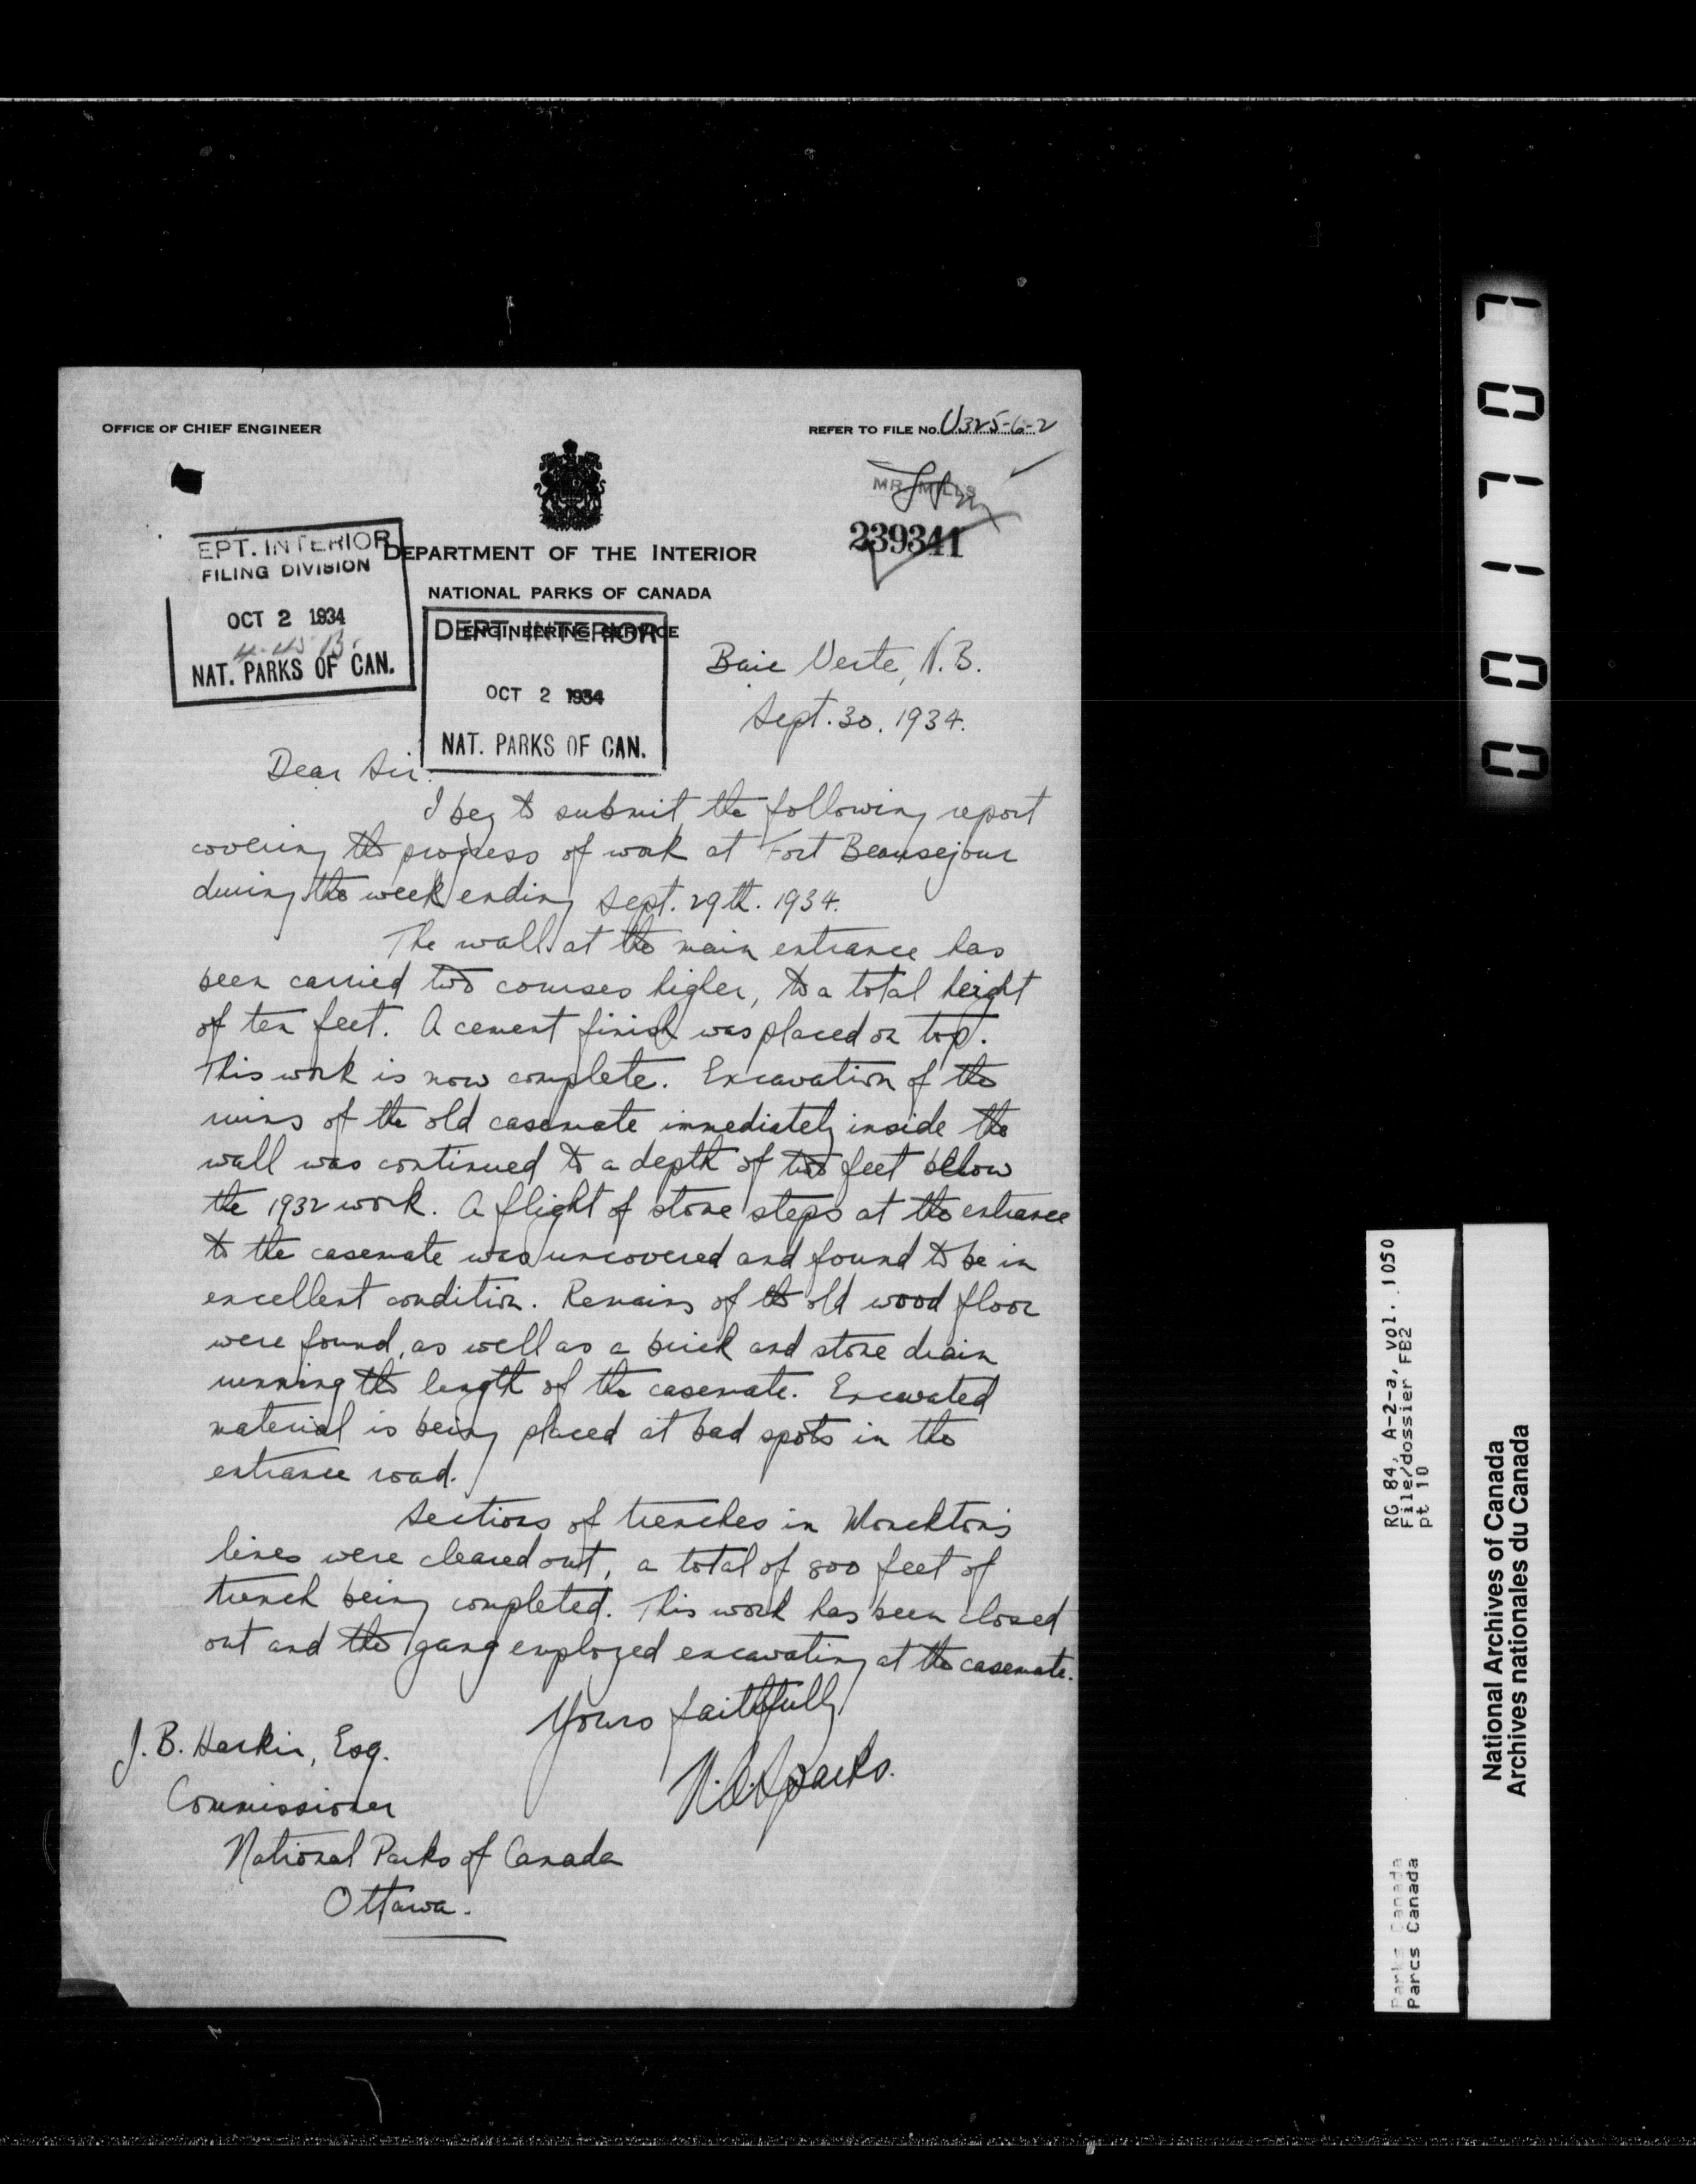 OFFICE OF CHIEF ENGINEER
REFER TO FILE No. U325-6-2
MR. MILLS
239341
EPT. INTERIOR
FILING DIVISION
OCT 2 1934
NAT. PARKS OF CAN.
DEPARTMENT OF THE INTERIOR
NATIONAL PARKS OF CANADA
ENGINEERING SERVICE
DEPT. INTERIOR
OCT 2 1934
NAT. PARKS OF CAN.
Baie Verte, N.B.
Sept. 30. 1934.
Dear Sir:
I beg to submit the following report
covering the progress of work at Fort Beausejour
during the week ending Sept. 29th. 1934.
The wall at the main entrance has
been carried two courses higher, to a total height
of ten feet. A cement finish was placed on top.
This work is now complete. Excavation of the
ruins of the old casemate immediately inside the
wall was continued to a depth of two feet below
the 1932 work. A flight of stone steps at the entrance
to the casemate was uncovered and found to be in
excellent condition. Remains of the old wood floor
were found, as well as a brick and stone drain
running the length of the casemate. Excavated
material is being placed at bad spots in the
entrance road.
Sections of trenches in Monckton's
lines were cleared out, a total of 800 feet of
trench being completed. This work has been closed
out and the gang employed excavating at the casemate.
Yours faithfully
J. B. Harkin, Esq.
K.A. Sparks.
Commissioner
National Parks of Canada
Ottawa.
0001707
RG 84, A-2-a, vol. 1050
File/dossier FB2
pt 10
Parks Canada
Parcs Canada
National Archives of Canada
Archives nationales du Canada